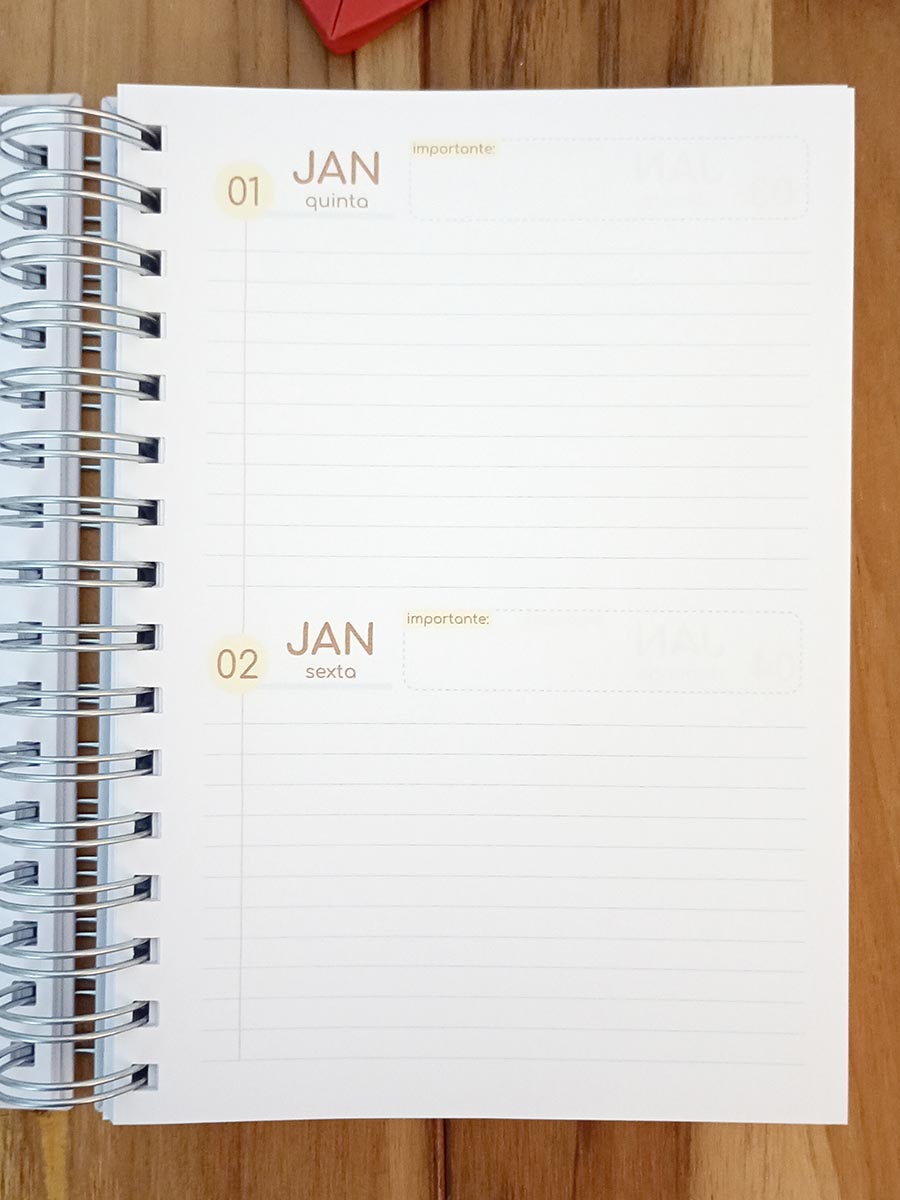 01
JAN
quinta
importante:
02
JAN
sexta
importante: